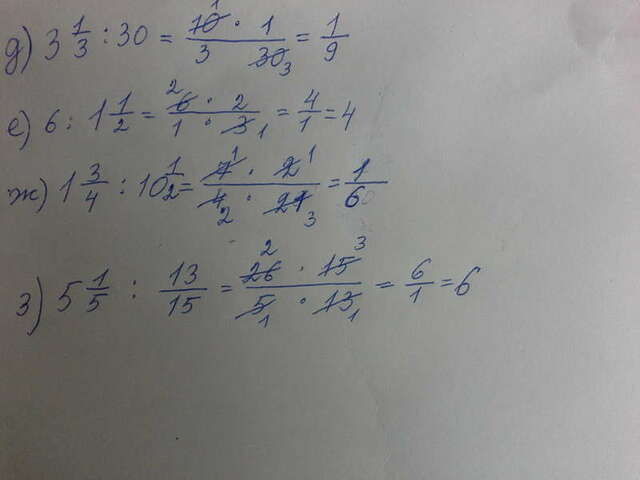 д) 3 1/3 : 30 = 10 1 · 1 / 3 30 3 = 1/9
е) 6 : 1 1/2 = 2 6 · 2 / 1 · 3 1 = 4/1 = 4
ж) 1 3/4 : 10 1/2 = 7 1 · 2 1 / 4 2 · 21 3 = 1/6
з) 5 1/5 : 13/15 = 26 2 · 15 3 / 5 1 · 13 1 = 6/1 = 6